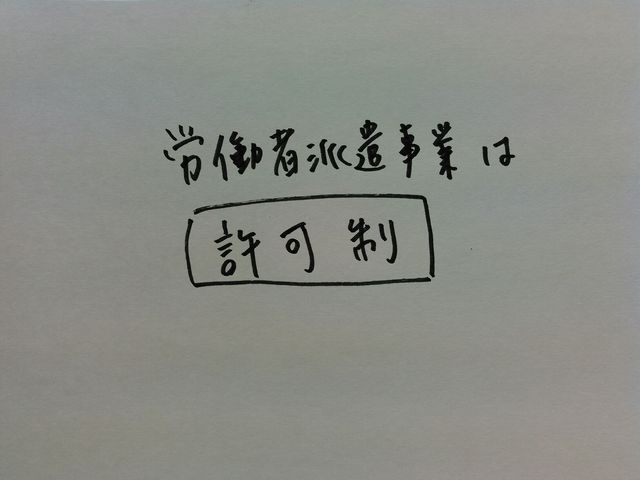 労働者派遣事業は
許可制